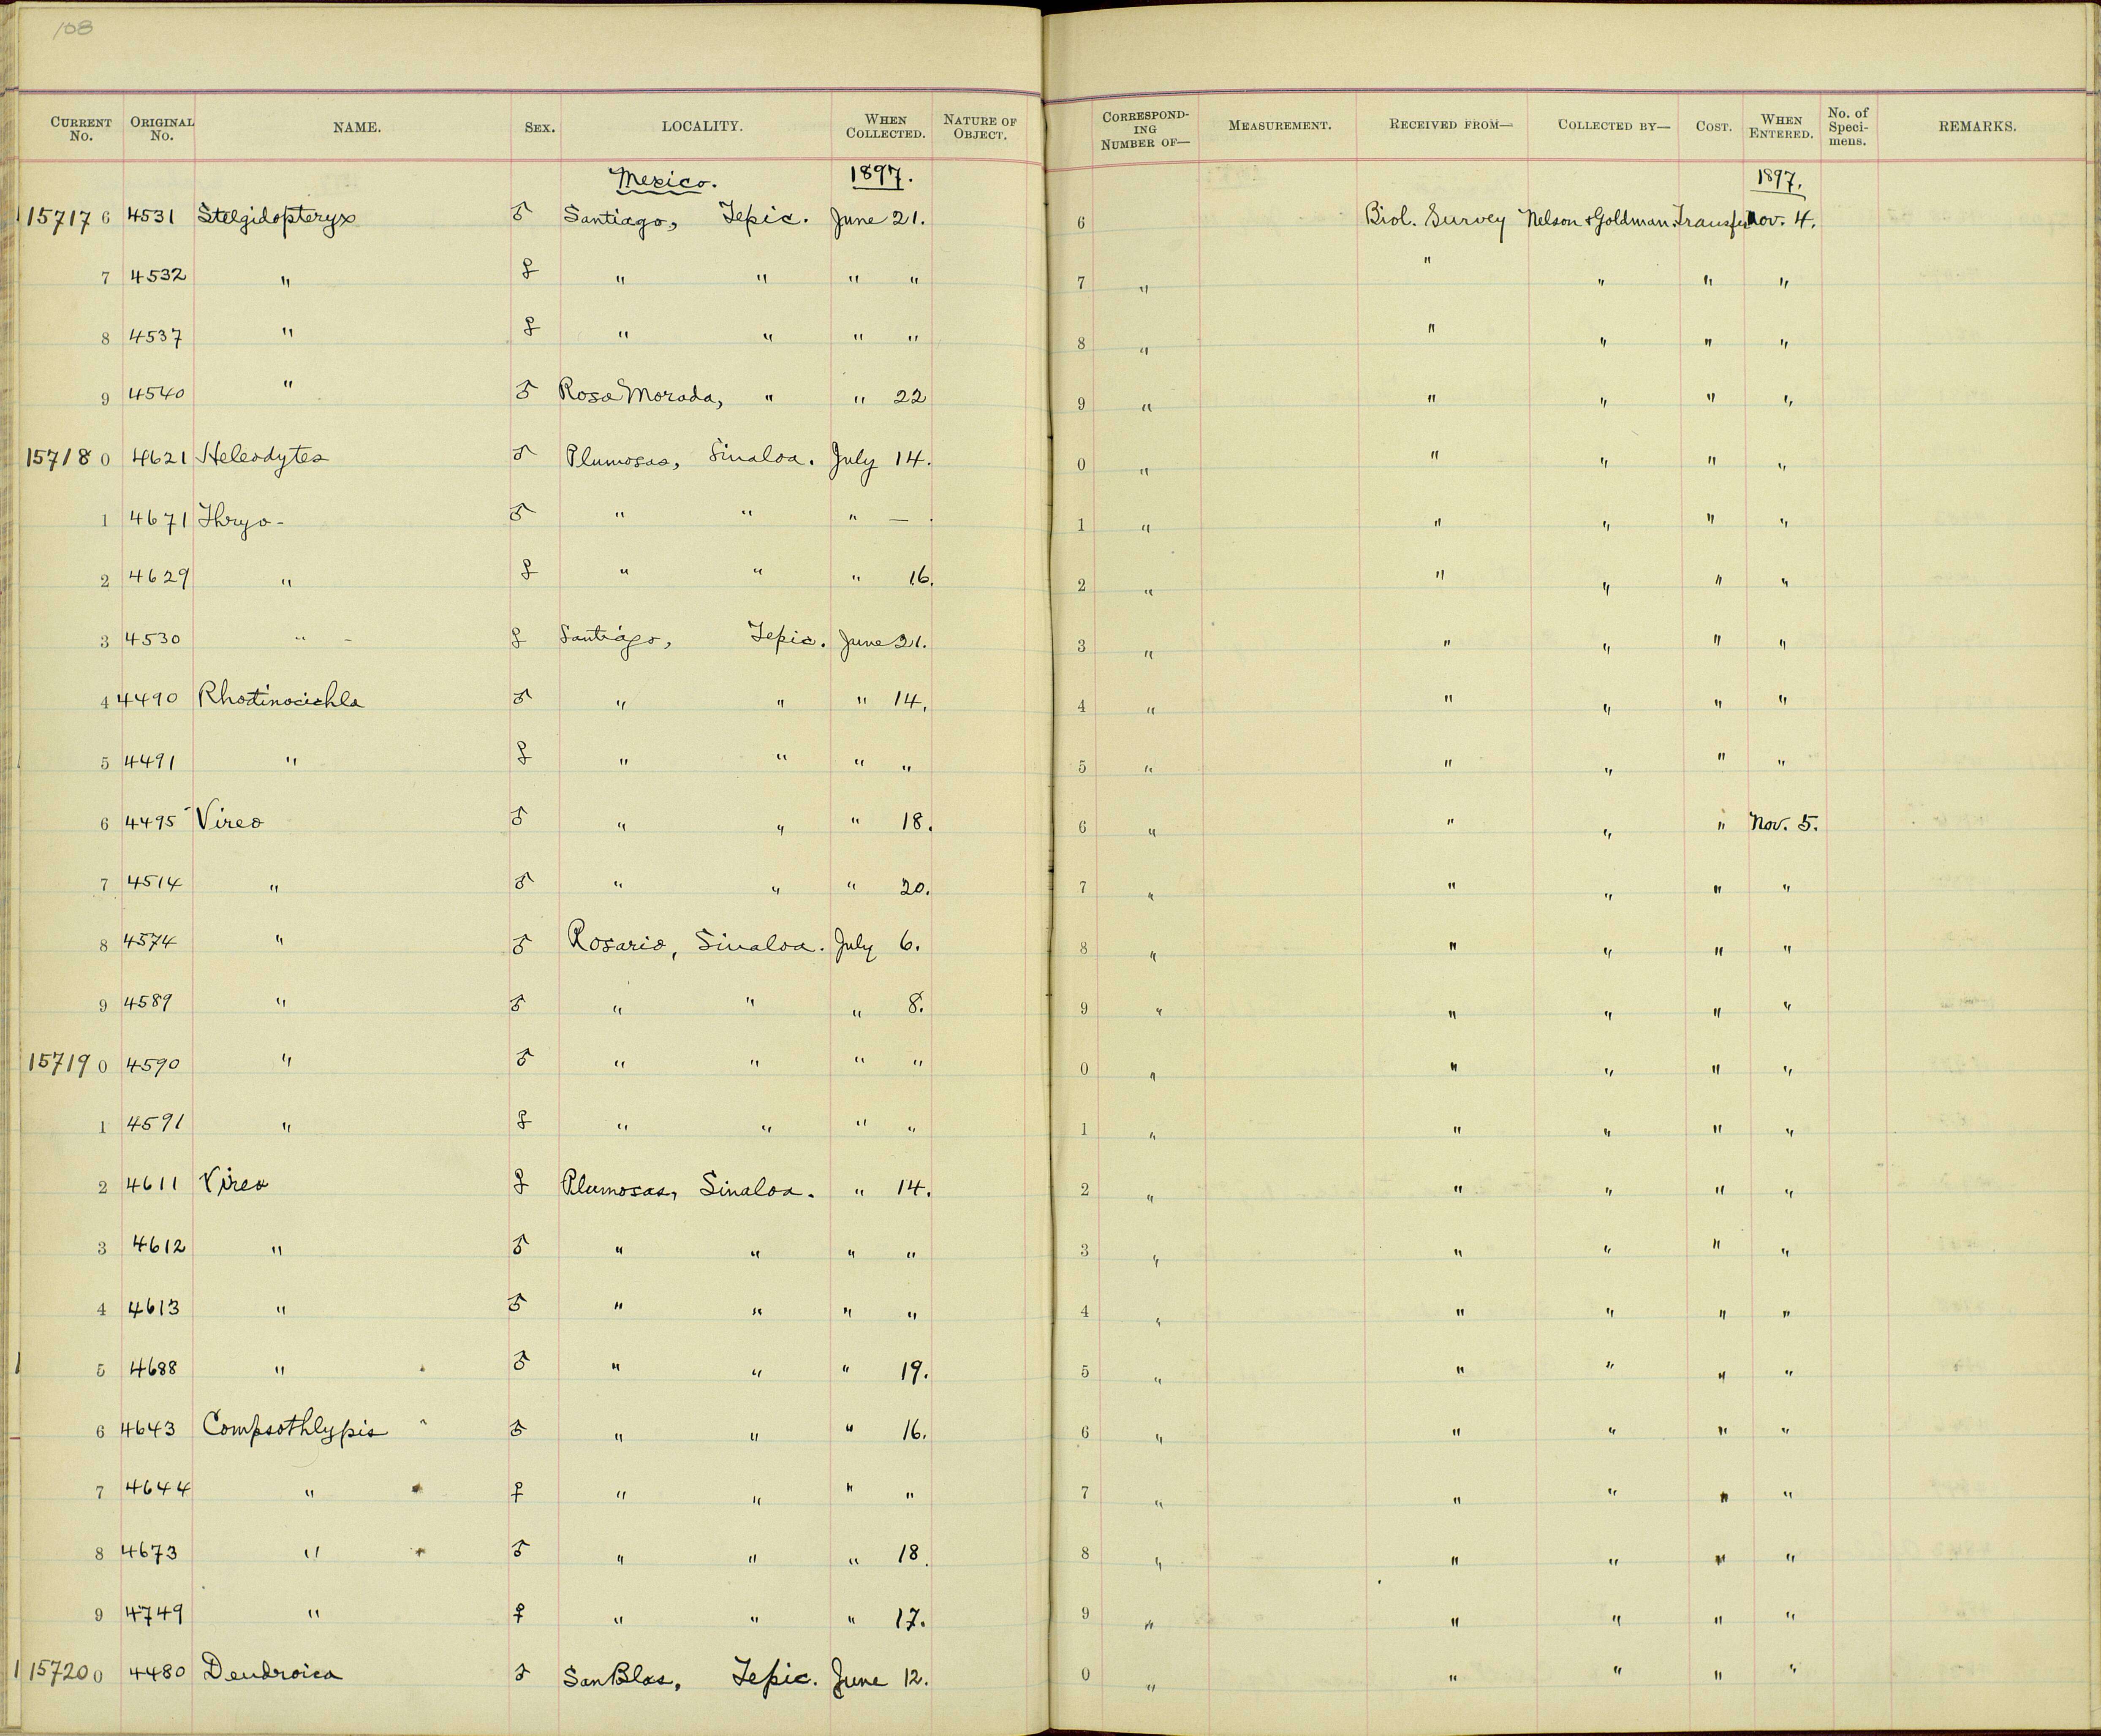 108
CURRENT No. ORIGINAL No. NAME. SEX. LOCALITY. WHEN COLLECTED. NATURE OF OBJECT. CORRESPOND-ING NUMBER OF— MEASUREMENT. RECEIVED FROM— COLLECTED BY— COST. WHEN ENTERED. No. of Speci-mens. REMARKS.
Mexico. 1897. 1897.
15717 6 4531 Stelgidopteryx ♂ Santiago, Tepic. June 21. 6 Biol. Survey Nelson & Goldman. Transfer Nov. 4.
7 4532 " ♀ " " " " 7 " " " " "
8 4537 " ♀ " " " " 8 " " " " "
9 4540 " ♂ Rosa Morada, " " 22 9 " " " " "
15718 0 4621 Heleodytes ♂ Plumosas, Sinaloa. July 14. 0 " " " " "
1 4671 Thryo- ♂ " " " — . 1 " " " " "
2 4629 " ♀ " " " 16. 2 " " " " "
3 4530 " - ♀ Santiago, Tepic. June 21. 3 " " " " "
4 4490 Rhodinocichla ♂ " " " 14. 4 " " " " "
5 4491 " ♀ " " " " 5 " " " " "
6 4495 Vireo ♂ " " " 18. 6 " " " " Nov. 5.
7 4514 " ♂ " " " 20. 7 " " " " "
8 4574 " ♂ Rosario, Sinaloa. July 6. 8 " " " " "
9 4589 " ♂ " " " 8. 9 " " " " "
15719 0 4590 " ♂ " " " " 0 " " " " "
1 4591 " ♀ " " " " 1 " " " " "
2 4611 Vireo ♀ Plumosas, Sinaloa. " 14. 2 " " " " "
3 4612 " ♂ " " " " 3 " " " " "
4 4613 " ♂ " " " " 4 " " " " "
5 4688 " ♂ " " " 19. 5 " " " " "
6 4643 Compsothlypis ♂ " " " 16. 6 " " " " "
7 4644 " ♀ " " " " 7 " " " " "
8 4673 " ♂ " " " 18. 8 " " " " "
9 4749 " ♀ " " " 17. 9 " " " " "
15720 0 4480 Dendroica ♂ San Blas, Tepic. June 12. 0 " " " " "